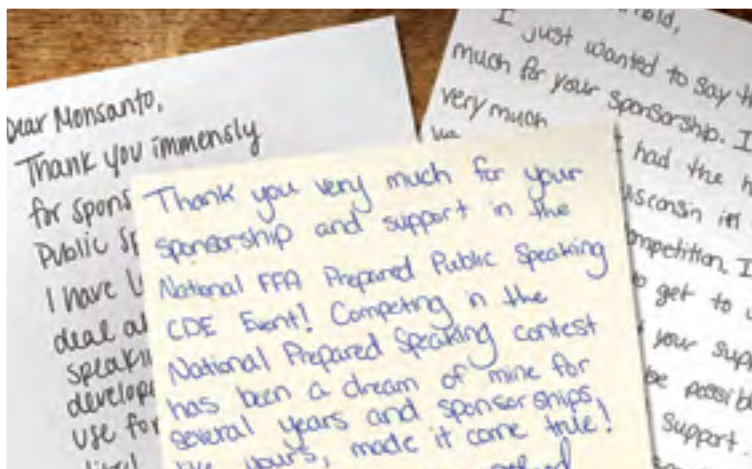 Dear Monsanto,
Thank you immensly
for
Public
I have
deal
Use for
Thank you very much for your
sponsorship and support in the
National FFA Prepared Public Speaking
CDE Event! Competing in the
National Prepared Speaking contest
has been a dream of mine for
several years and sponsorships,
like yours, made it come true!
I just wanted to say
much for your sponsorship. I
very much
had the
in
competition. I
get to
your
be
support.